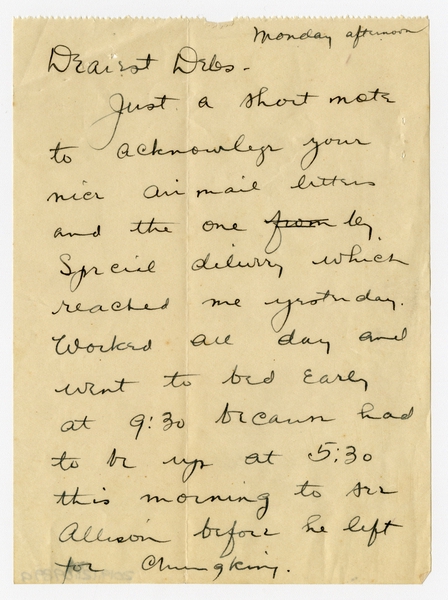 Monday afternoon
Dearest Debs -
Just a short note
to acknowlege your
nice air mail letters
and the one from by
Special delivery which
reached me yesterday.
Worked all day and
went to bed early
at 9:30 because had
to be up at 5:30
this morning to see
Allison before he left
for Chungking.